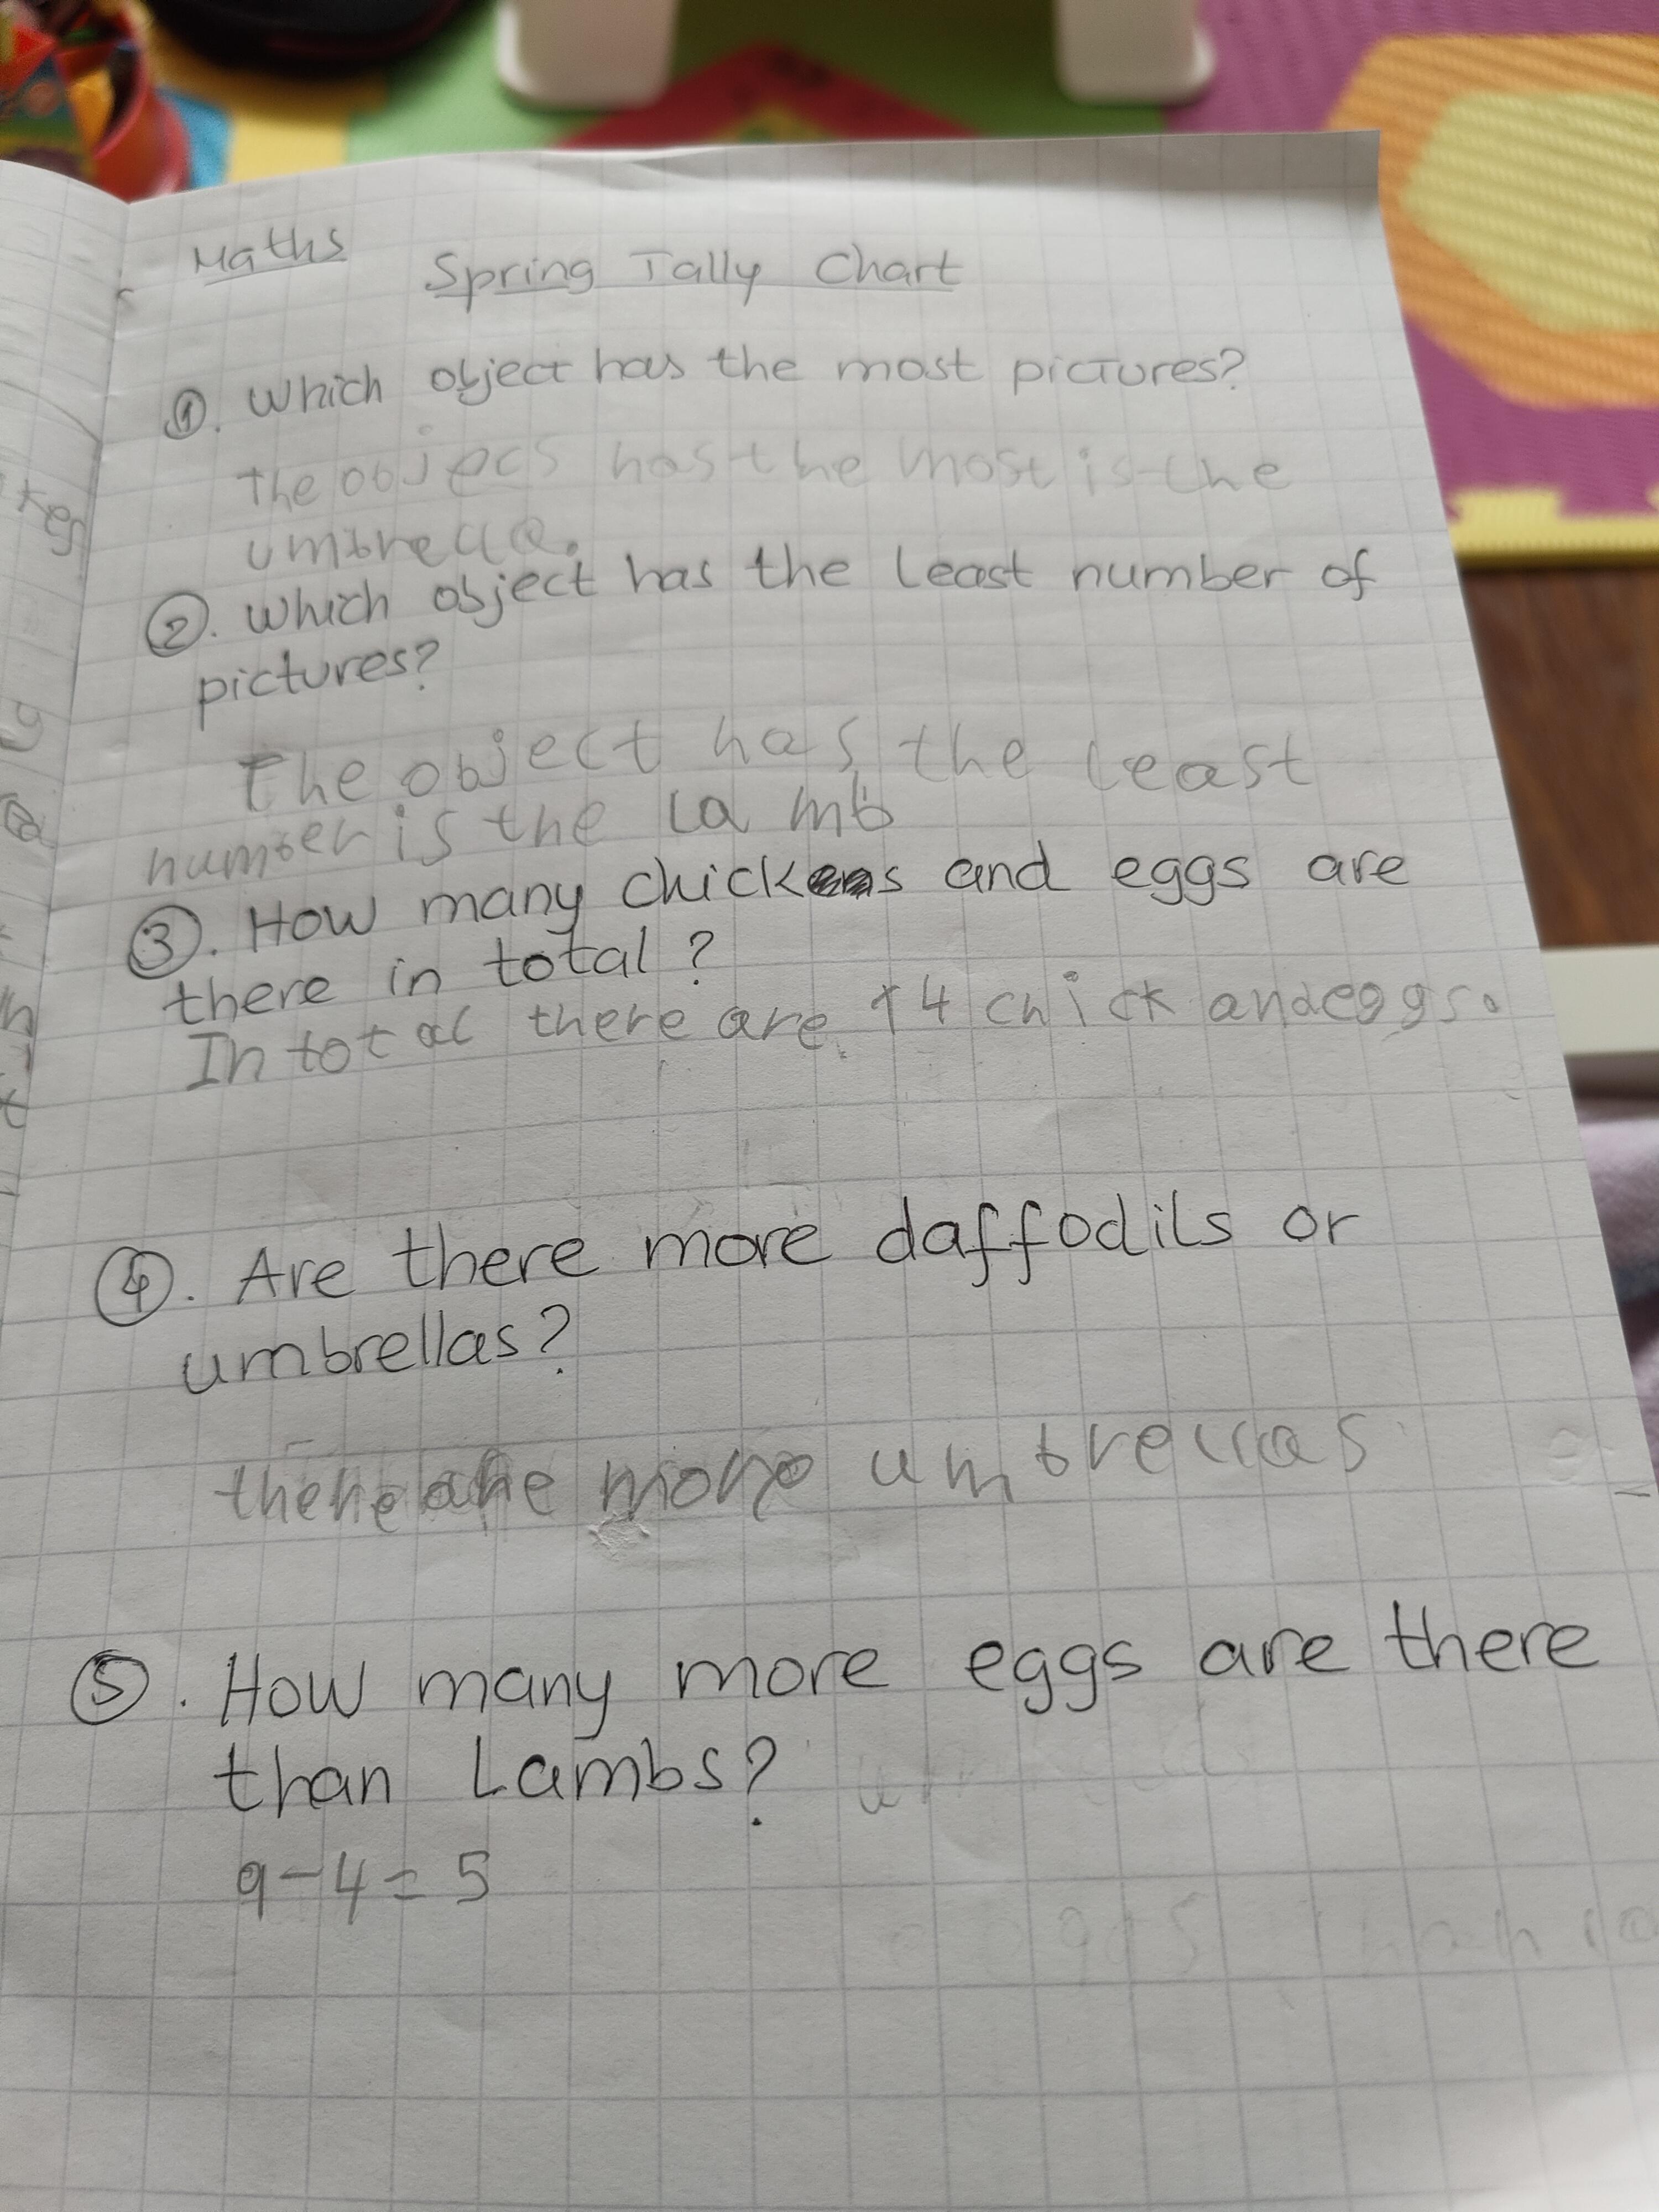 Maths
Spring Tally Chart
①. Which object has the most pictures?
The objecs has the most is the
umbrella.
②. Which object has the least number of
pictures?
The object has the least
number is the lamb
③. How many chicks and eggs are
there in total?
In total there are 14 chick and eggs.
④. Are there more daffodils or
umbrellas?
there are more umbrellas
⑤. How many more eggs are there
than Lambs?
9-4=5